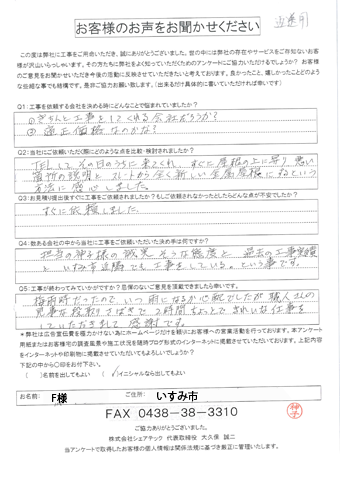 お客様のお声をお聞かせください
この度は弊社に工事をご用命いただき、誠にありがとうございました。世の中には弊社の存在やサービスをご存知ないお客様が沢山いらっしゃいます。その方たちも弊社をよく知っていただくためのアンケートにご協力いただけるでしょうか?お客様のご意見をお聞かせいただき今後の活動に反映させていただきたいと考えております。良かったこと、嬉しかったことどのような些細な事でも結構です。是非ご協力お願い致します。(出来るだけ具体的に書いていただければ幸いです)
Q1:工事を依頼する会社を決める時にどんなことで悩まれていましたか?
①きちんと工事をしてくれる会社だろうか?
②適正価格なのかな?
Q2:当社にご依頼いただく際にどのような点を比較・検討されましたか?
TELして その日のうちに来てくれ、すぐに屋根の上に昇り 悪い
箇所の説明と スレートから全く新しい金属屋根にするという
方法に感心しました。
Q3:お見積り提出後すぐにご依頼されましたか?もしご依頼されなかったとしたらどんな点が不安でしたか?
すぐに依頼しました。
Q4:数ある会社の中から当社に工事をご依頼いただいた決め手は何ですか?
担当の神子様の誠実そうな態度と 過去の工事実績
と いすみ市近隣でも工事をしている。という事です。
Q5:工事が終わってみていかがですか?忌憚のないご意見を頂戴できましたら幸いです。
梅雨時だったので、いつ雨になるか心配でしたが 職人さんの
見事な役割りさばきで 2時間ちょっとで きれいな仕事を
していただきまして 感謝です。
*弊社は広告宣伝費を極力かけない為にホームページだけを頼りにお客様への営業活動を行っております。本アンケート用紙またはお客様宅の調査風景や施工状況を随時ブログ形式のインターネットに掲載させていただいております。上記内容をインターネットや印刷物に掲載させていただいてもよろしいでしょうか?
下記の中から○印をお付け下さい。
( )名前を出してもよい ( )イニシャルなら出してもよい
お名前: F様 ご住所: いすみ市
FAX 0438-38-3310
神子
ご協力ありがとうございました。
株式会社シェアテック 代表取締役 大久保 誠二
当アンケートで取得したお客様の個人情報は関係法規に基づき厳正に管理いたします。